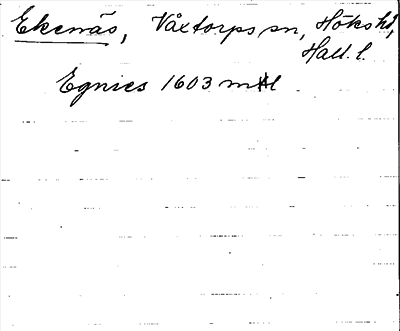 Ekenäs, Våxtorps sn, Höks hd,
Hall. l.
Egnies 1603 mtl